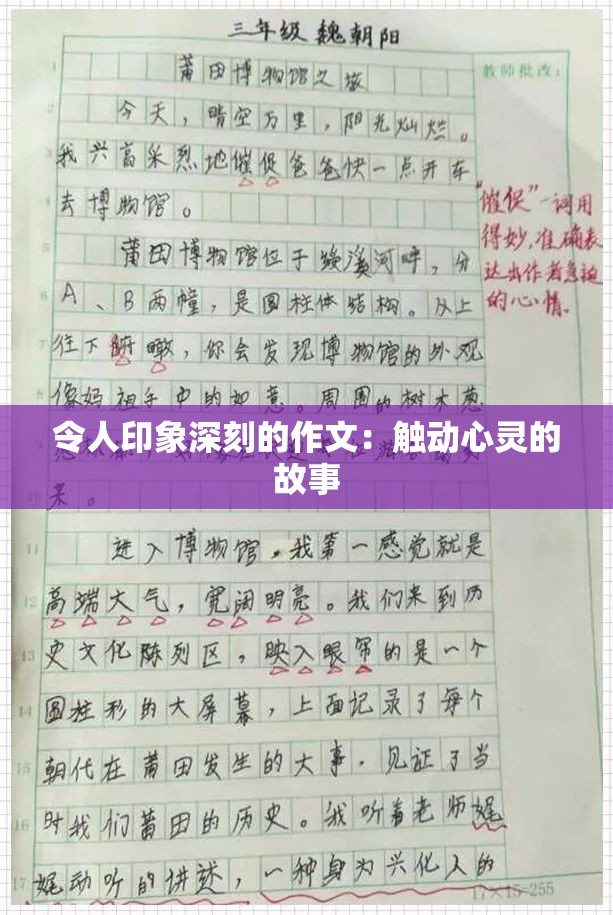 三年级 魏朝阳
莆田博物馆之旅
教师批改：
今天，晴空万里，阳光灿烂。
我兴高采烈地催促爸爸快一点开车
去博物馆。
"催促"一词用
得妙,准确表
达出作者急迫
的心情。
莆田博物馆位于绶溪河畔，分
A、B两幢，是圆柱体结构。从上
往下俯瞰，你会发现博物馆的外观
像妈祖手中的如意。周围的树木葱
令人印象深刻的作文：触动心灵的
故事
来。
进入博物馆，我第一感觉就是
高端大气，宽阔明亮。我们来到历
史文化陈列区，映入眼帘的是一个
圆柱形的大屏幕，上面记录了每个
朝代在莆田发生的大事，见证了当
时我们莆田的历史。我听着老师娓
娓动听的讲述，一种身为兴化人的
17×15=255